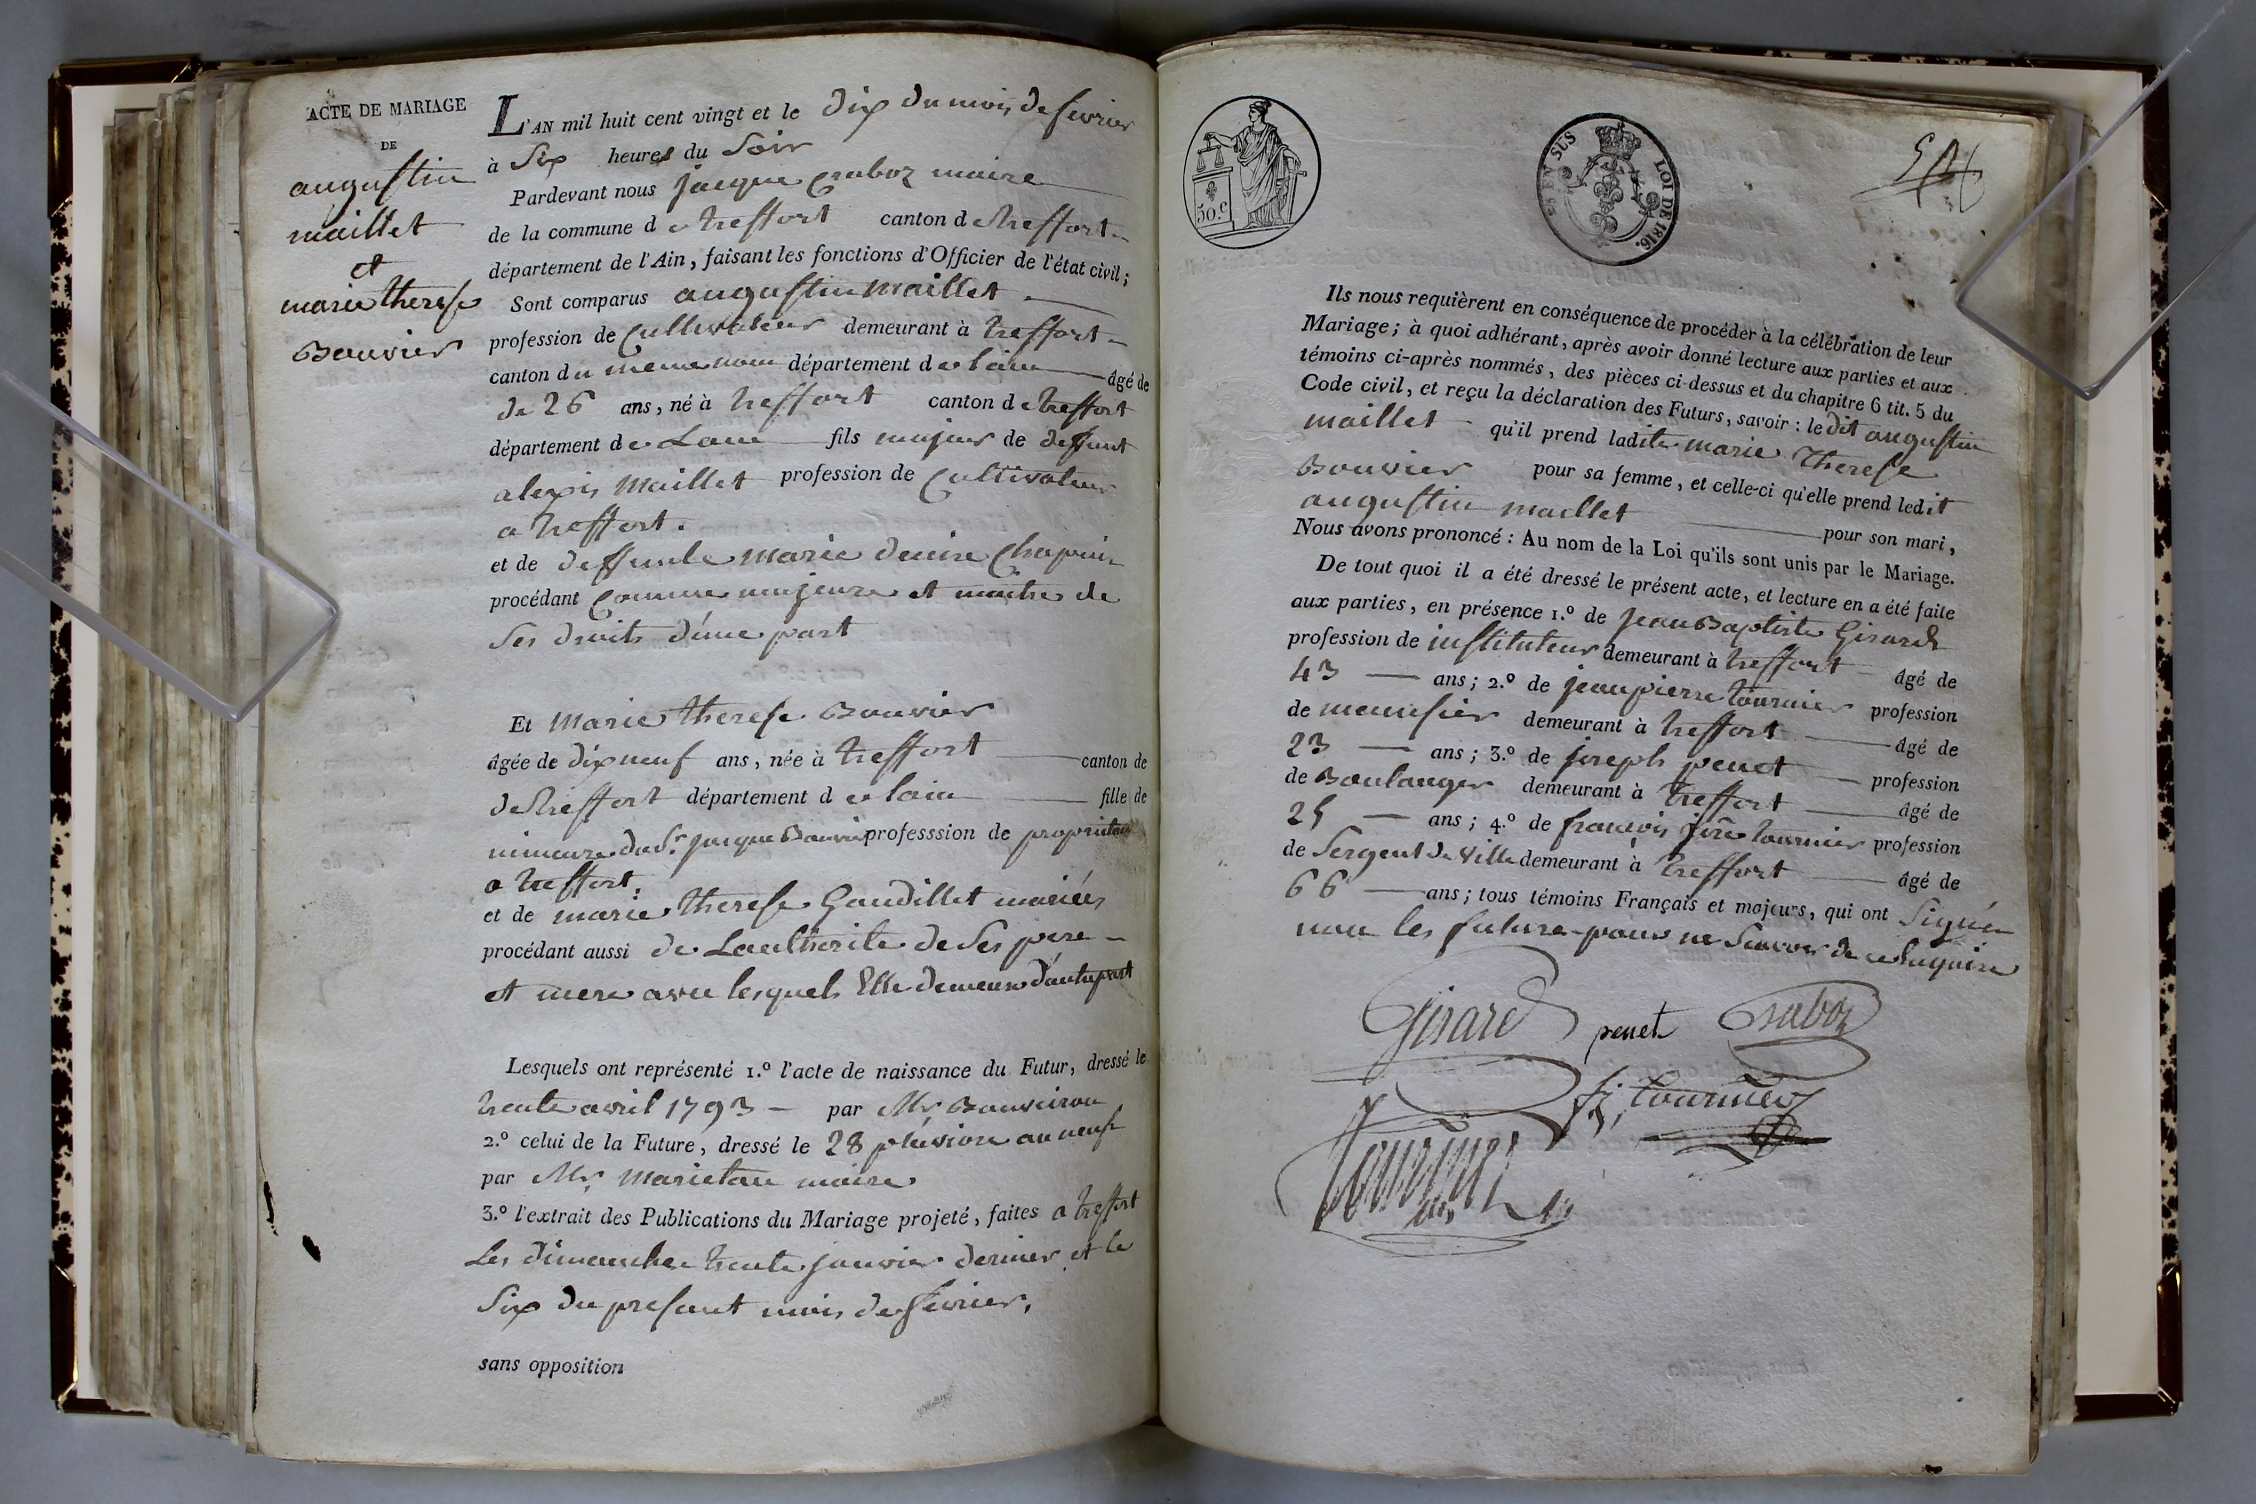 ACTE DE MARIAGE
DE
augustin
maillet
et
marie therese
Bouvier
L'AN mil huit cent vingt et le dix du mois de fevrier
à Six heures du Soir
Pardevant nous jacque Craboz maire
de la commune de treffort canton de treffort
département de l'Ain, faisant les fonctions d'Officier de l'état civil;
Sont comparus augustin maillet
profession de Cultivateur demeurant à treffort
canton du meme nom département de lain âgé de
de 26 ans, né à treffort canton de treffort
département de Lain fils majeur de deffunt
alexis Maillet profession de Cultivateur
a treffort.
et de deffunte marie denise Chapuis
procédant comme majeure et maitre de
Ses droits d'une part
Et Marie therese Bouvier
âgée de dix neuf ans, née à treffort canton de
de treffort département de lain fille de
mineure du Sr. jacque Bouvier professsion de proprietaire
a treffort.
et de marie therese Gaudillet mariés
procédant aussi de Lautherite de Ses pere
et mere avec lesquels Elle demeure d'autre part
Lesquels ont représenté 1.º l'acte de naissance du Futur, dressé le
trente avril 1793 par Mr Bouveiron
2.º celui de la Future, dressé le 28 pluviose an neuf
par Mr. Marietan maire
3.º l'extrait des Publications du Mariage projeté, faites a treffort
Les dimanches trente janvier dernier et le
Six du present mois de fevrier,
sans opposition
50.c
EN SUS
LOI DE 1816.
Ils nous requièrent en conséquence de procéder à la célébration de leur
Mariage; à quoi adhérant, après avoir donné lecture aux parties et aux
témoins ci-après nommés, des pièces ci-dessus et du chapitre 6 tit. 5 du
Code civil, et reçu la déclaration des Futurs, savoir: le dit augustin
maillet qu'il prend ladite marie Therese
Bouvier pour sa femme, et celle-ci qu'elle prend ledit
augustin maillet pour son mari,
Nous avons prononcé: Au nom de la Loi qu'ils sont unis par le Mariage.
De tout quoi il a été dressé le présent acte, et lecture en a été faite
aux parties, en présence 1.º de jean Baptiste Girard
profession de instituteur demeurant à treffort âgé de
43 ans; 2.º de jean pierre tournier profession
de menusier demeurant à treffort âgé de
23 ans; 3.º de joseph penet profession
de Boulanger demeurant à treffort âgé de
25 ans; 4.º de francois tournier profession
de Sergent de Ville demeurant à treffort âgé de
66 ans; tous témoins Français et majeurs, qui ont Signés
non les future pour ne Savoir de ce Enquire
Girard penet Craboz
fs tournier
tournier